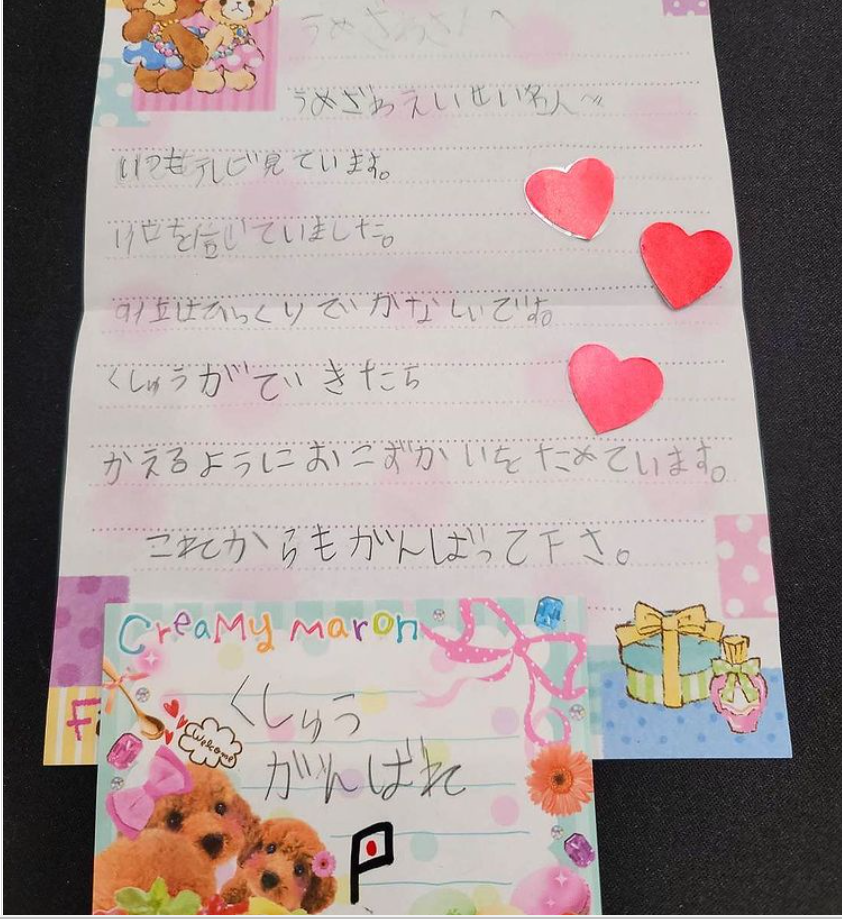 うめざわさんへ
うめざわえいせい名人へ
いつもテレビ見ています。
1位を信じていました。
9位はびっくりでかなしいです。
くしゅうができたら
かえるようにおこずかいをためています。
これからもがんばって下さ。
CreaMy maron
くしゅう
Welcome
がんばれ